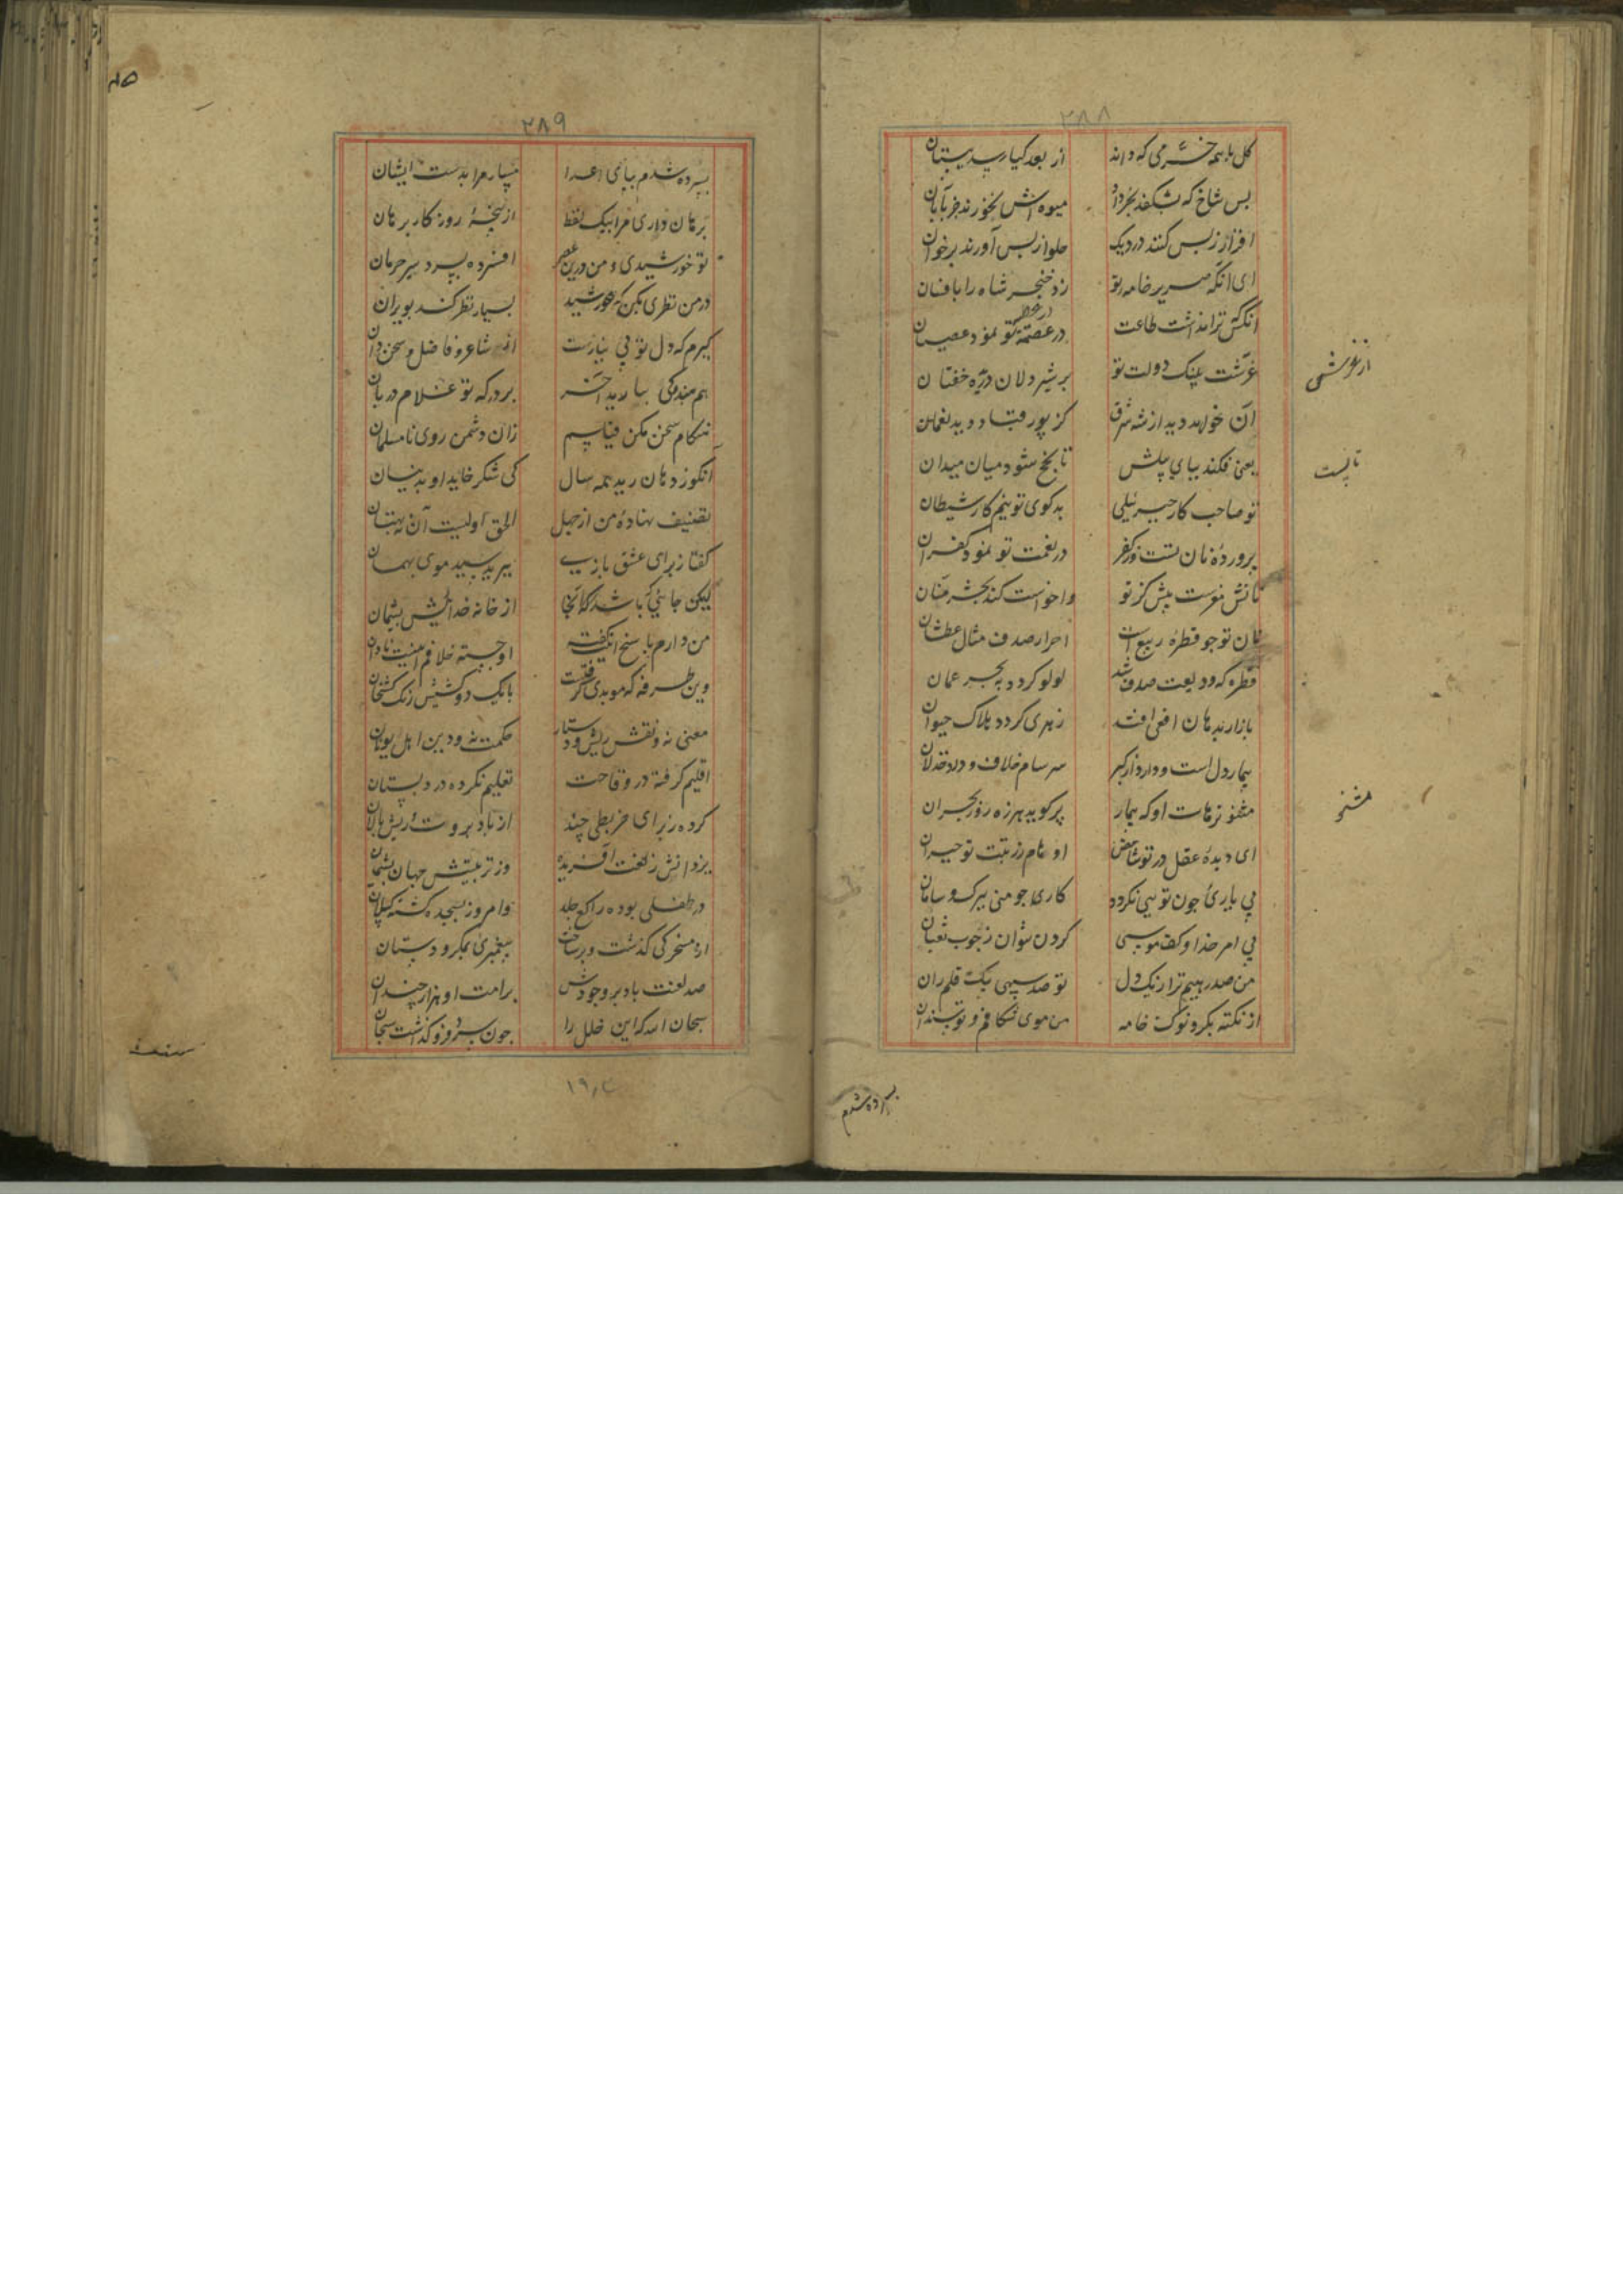 ۲۸۸
کل با همه خرمی که داند از بعد کیا رسد ببستان
بس شاخ که بشکفد بخرداد میوه اش نخورند در آبان
افزار زبس کنند در دیک حلوا زبس آورند بر خوان
ای آنکه صریر خامه تو زد خنجر شاه را بافسان
انکس که ترا نداشت طاعت در عصمت تو نمود عصیان
از غرشی
غرشت عینک دولت تو بر شیر دلان دره خفتان
آن خواهد دید از شه شرق کز پور قباد دید نعمان
تا پست
یعنی فکند بپای پیلش تا پخ شود میان میدان
تو صاحب کار جبرئیلی بدکوی تو نیم کار شیطان
پرورده نان تست وز کفر در نعمت تو نمود کفران
نانش مفرست بیش کز تو واخواست کند بحشر منان
نان تو چو قطره ربیع است احرار صدف مثال عطشان
قطره که ودیعت صدف شد لولو کردد به بحر عمان
باز ار بدهان افعی افتد زهری کردد هلاک حیوان
بیمار دل است و دارد از کبر سرسام خلاف و درد خذلان
مشنو
مشنو ترهات او که بیمار پر کوید هرزه روز بحران
ای دیده عقل در تو شاخص او هام ز رتبت تو حیران
بی یاری چون تویی نکردد کاری چو منی ببرک و سامان
بی امر خدا و کف موسی کردن نتوان ز چوب ثعبان
من صدر پیم ترا ز یک دل تو صد سپهی بیک قلم ران
از نکته بکر و نوک خامه من موی شکافم و تو سندان
برده شدم
۲۸۹
بسپرده شدم بپای اعدا مسپار مرا بدست ایشان
برهان داری مرا بیک لفظ از پنجه روزکار برهان
تو خورشیدی و من درین عصر افسرده بسرد سیر حرمان
در من نظری بکن که خورشید بسیار نظر کند بویران
کیرم که دل تو بی نیازست از شاعر و فاضل و سخن دان
هم بندکی بباید آخر بر درکه تو غلام دربان
هنکام سخن مکن قیاسم زان دشمن روی نامسلمان
آنکو ز دهان رید همه سال کی شکر خاید او بدینسان
تصنیف نهاده من از جهل الحق اولیت آن نه بهتان
کفتا ز برای عشق بازی پیرید سپید موی بهمان
لیکن جایی که باشد آنجا از خانه خدائیش پشیمان
من دارم با سخ انکفته او جسته خلافم اینت نادان
وین طرفه که موبدی کرفتست بانک دو کشیش رنک کشخان
معنی نه و نقش ریش و دستار حکمت نه و دین اهل یونان
اقلیم کرفته در وقاحت تعلیم نکرده در دبستان
کرده ز برای خر بطی چند از باد بروت و ریش پالان
یزدانش ز لعنت آفریده وز تربیتش جهان پشیمان
در طفلی بوده راکع جلد و امروز بسجده کشته کسلان
از مسخرکی کذشت و برساخت پیغمبری بمکر و دستان
صد لعنت باد بر وجودش بر امت او هزار چندان
سبحان الله که این خلل را چون بر سر و فرو کذاشت سبحان